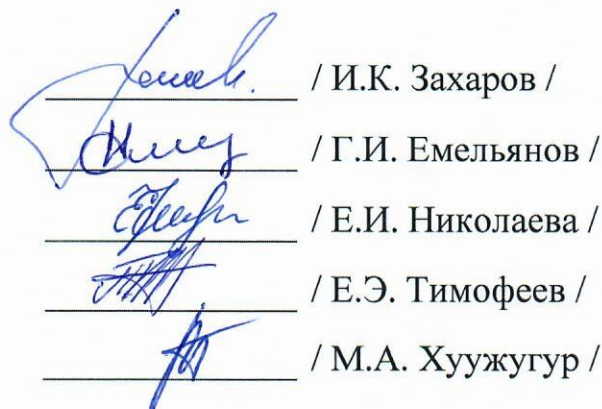 / И.К. Захаров /
/ Г.И. Емельянов /
/ Е.И. Николаева /
/ Е.Э. Тимофеев /
/ М.А. Хуужугур /